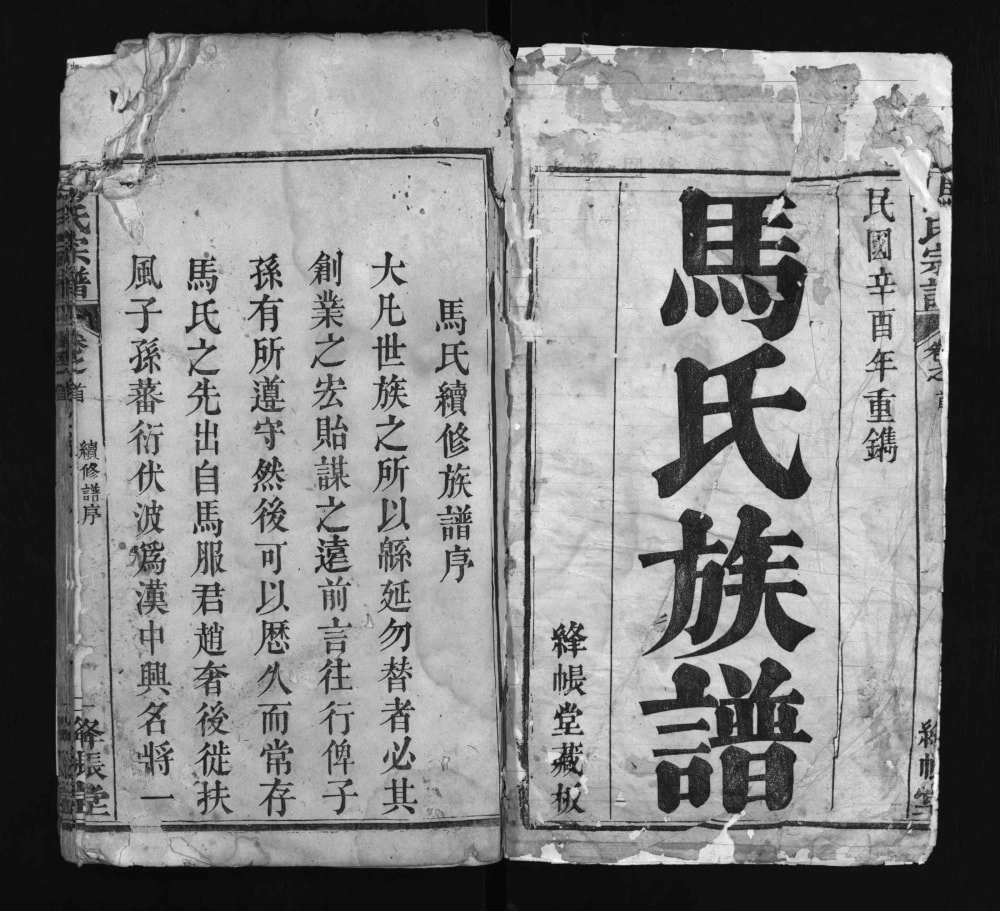 民國辛酉年重鐫
馬氏族譜
絳帳堂藏板
馬氏續修族譜序
大凡世族之所以緜延勿替者必其
創業之宏貽謀之遠前言往行俾子
孫有所遵守然後可以歷久而常存
馬氏之先出自馬服君趙奢後徙扶
風子孫蕃衍伏波爲漢中興名將一
氏宗譜
卷之首
續修譜序
一
絳帳堂